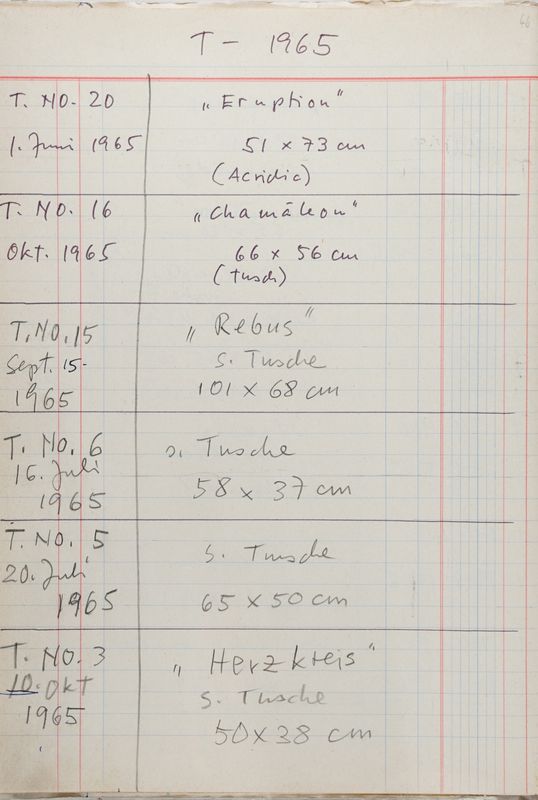 66
T - 1965
T. NO. 20
„Eruption"
1. Juni 1965
51 x 73 cm
(Acridic)
T. NO. 16
„Chamäleon"
Okt. 1965
66 x 56 cm
(Tusch)
T. NO. 15
„Rebus"
Sept. 15-
s. Tusche
1965
101 x 68 cm
T. NO. 6
s. Tusche
16. Juli
1965
58 x 37 cm
T. NO. 5
20. Juli
s. Tusche
1965
65 x 50 cm
T. NO. 3
„Herzkreis"
10. Okt
s. Tusche
1965
50 x 38 cm